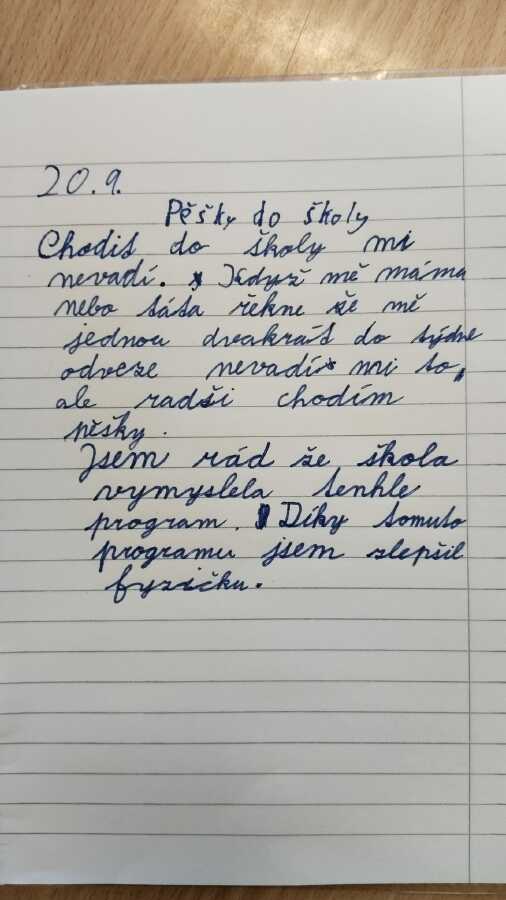 20.9.
Pěšky do školy
Chodit do školy mi
nevadí. Když mě máma
nebo táta řekne že mě
jednou dvakrát do týdne
odveze nevadí mi to,
ale radši chodím
pěšky.
Jsem rád že škola
vymyslela tenhle
program. Díky tomuto
programu jsem zlepšil
fyzičku.